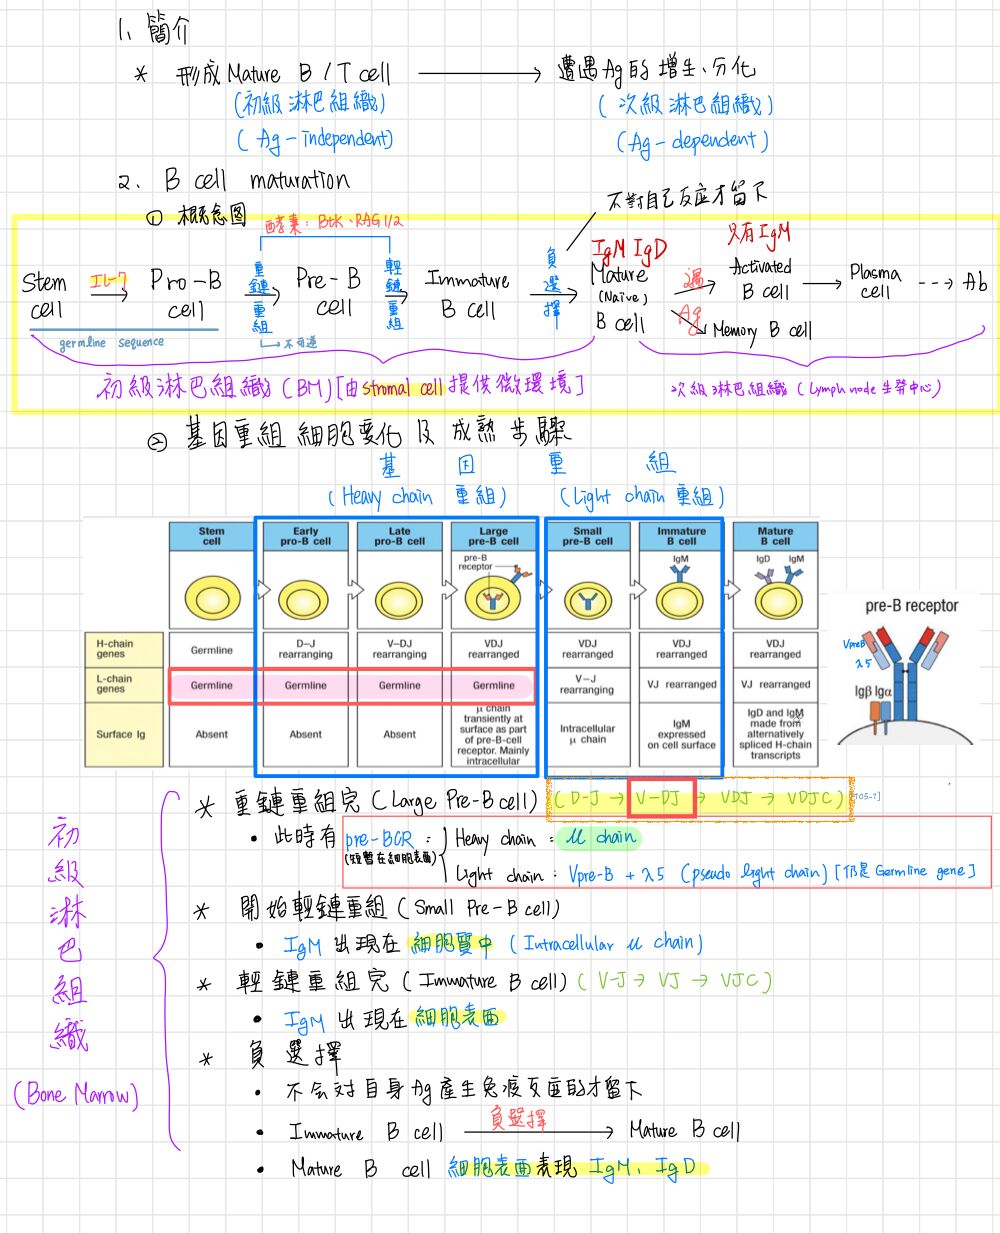 1、簡介
* 形成Mature B / T cell ⟶ 遭遇Ag的增生、分化
(初級淋巴組織) (次級淋巴組織)
(Ag-independent) (Ag-dependent)
2、B cell maturation
① 概念圖
不對自己反應才留下
酵素: Btk、RAG1/2
Stem cell
IL-7
Pro-B cell
重鏈重組
Pre-B cell
輕鏈重組
Immature B cell
負選擇
IgM IgD
Mature (Naive) B cell
遇Ag
只有IgM
Activated B cell
Memory B cell
Plasma cell
Ab
germline sequence
不可逆
初級淋巴組織(BM)[由stromal cell提供微環境]
次級淋巴組織(Lymph node生發中心)
② 基因重組細胞變化及成熟步驟
基因重組
(Heavy chain 重組) (Light chain 重組)
Stem cell
Early pro-B cell
Late pro-B cell
Large pre-B cell
Small pre-B cell
Immature B cell
Mature B cell
pre-B receptor
IgM
IgD IgM
H-chain genes
Germline
D–J rearranging
V–DJ rearranging
VDJ rearranged
VDJ rearranged
VDJ rearranged
VDJ rearranged
L-chain genes
Germline
Germline
Germline
Germline
V–J rearranging
VJ rearranged
VJ rearranged
Surface Ig
Absent
Absent
Absent
μ chain transiently at surface as part of pre-B-cell receptor. Mainly intracellular
Intracellular μ chain
IgM expressed on cell surface
IgD and IgM made from alternatively spliced H-chain transcripts
pre-B receptor
VpreB
λ5
Igβ Igα
初級淋巴組織
(Bone Marrow)
* 重鏈重組完(Large Pre-B cell) (D-J → V-DJ → VDJ → VDJC)
• 此時有 pre-BCR: Heavy chain: μ chain
(短暫在細胞表面)
Light chain: Vpre-B + λ5 (pseudo light chain) [仍是Germline gene]
* 開始輕鏈重組(Small Pre-B cell)
• IgM 出現在 細胞質中 (Intracellular μ chain)
* 輕鏈重組完(Immature B cell) (V-J → VJ → VJC)
• IgM 出現在 細胞表面
* 負選擇
• 不会对自身Ag產生免疫反應的才留下
• Immature B cell 負選擇⟶ Mature B cell
• Mature B cell 細胞表面表現 IgM、IgD